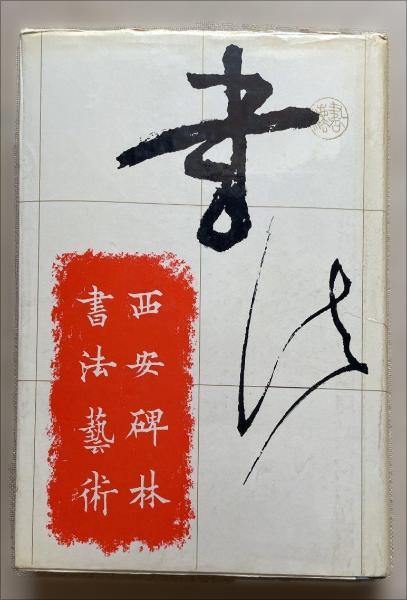 書法
西安碑林
書法藝術